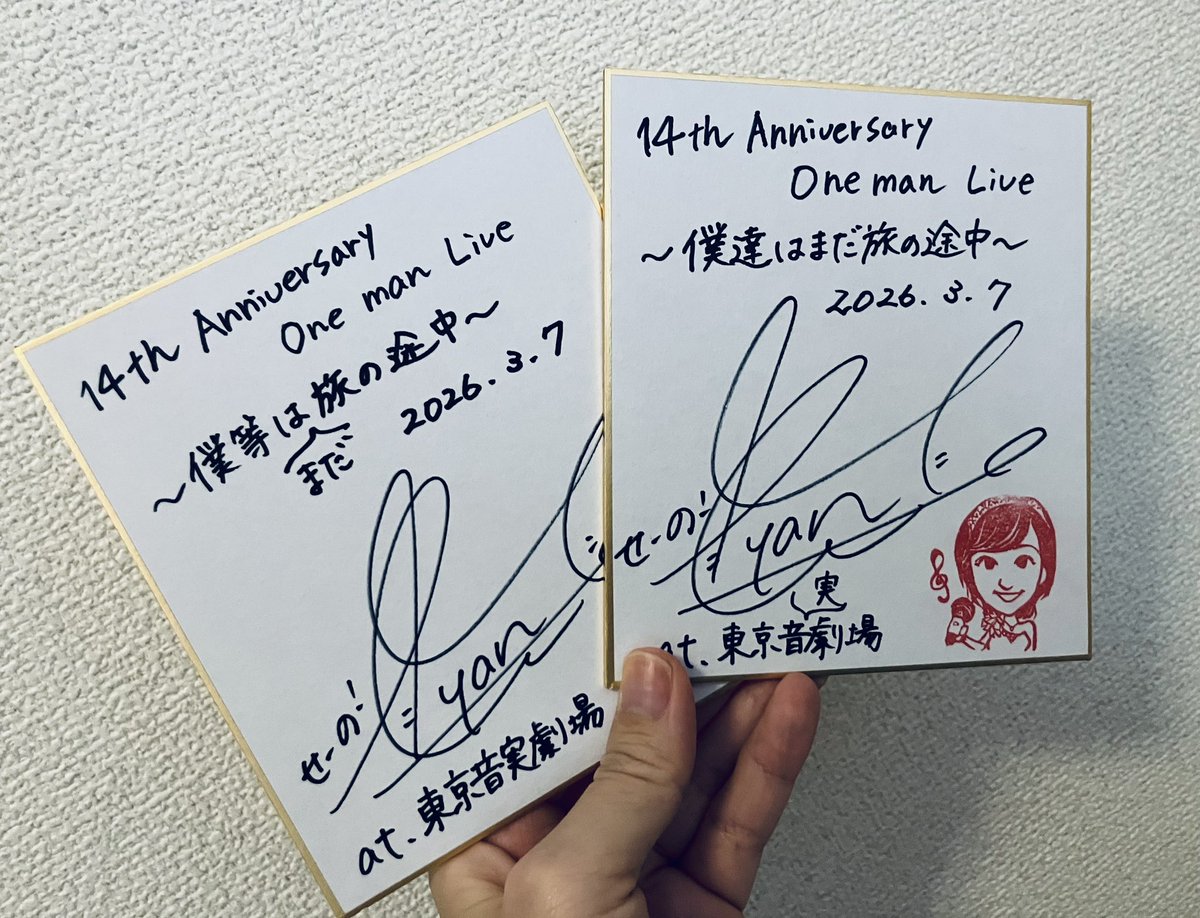 14th Anniversary
One man Live
～僕等は旅の途中～
まだ
2026.3.7
せーの!
yan
at.東京音実劇場
14th Anniversary
One man Live
～僕達はまだ旅の途中～
2026.3.7
せーの!
yan
実
at.東京音劇場